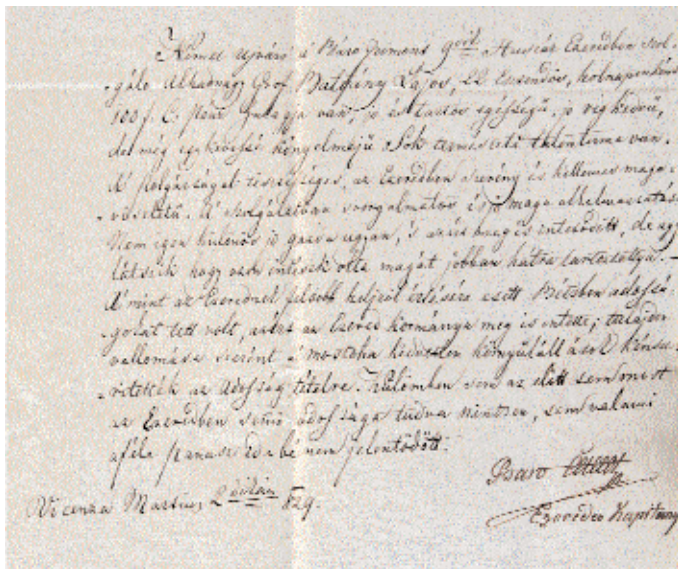 Német ujvári a Báro Frimont 9dik Huszár Ezeredben szol-
gálo Alhadnagy Grof Batthyány Lajos, 22 Esztendős, holnaponként
100 f. C. van, jo és tartos egésségű, jo vig kedvű,
de még egykevéssé kényelmejű Sok természeti talentuma van.
A' polgársággal tisztességes, az Ezeredben szerény és kellemes maga
viseletű. A' szolgálatban szorgalmatos és jo maga alkalmaztatásu
Nem igen különös jo gazda ugyan, 's azért meg is intődött, de ugy
látszik hogy ezen intések olta magát jobban hátra tartoztatja. -
A' mint az Ezerednél felsőbb helyről értésére esett Bétsben adóssá-
gokat tett volt, azért az Ezered kormánya meg is intette; tulajdon
vallomása szerént a' mostoha kedvetlen környülállások kénsze-
ritették az adosság tételre. Külömben sem az előtt sem most
az Ezeredben semmi adossága tudva nintsen, sem valami
aféle panasz ide bé nem jelentődött.
Báro
Vicenza Martius 2dikán 829.
Ezeredes Kapitány